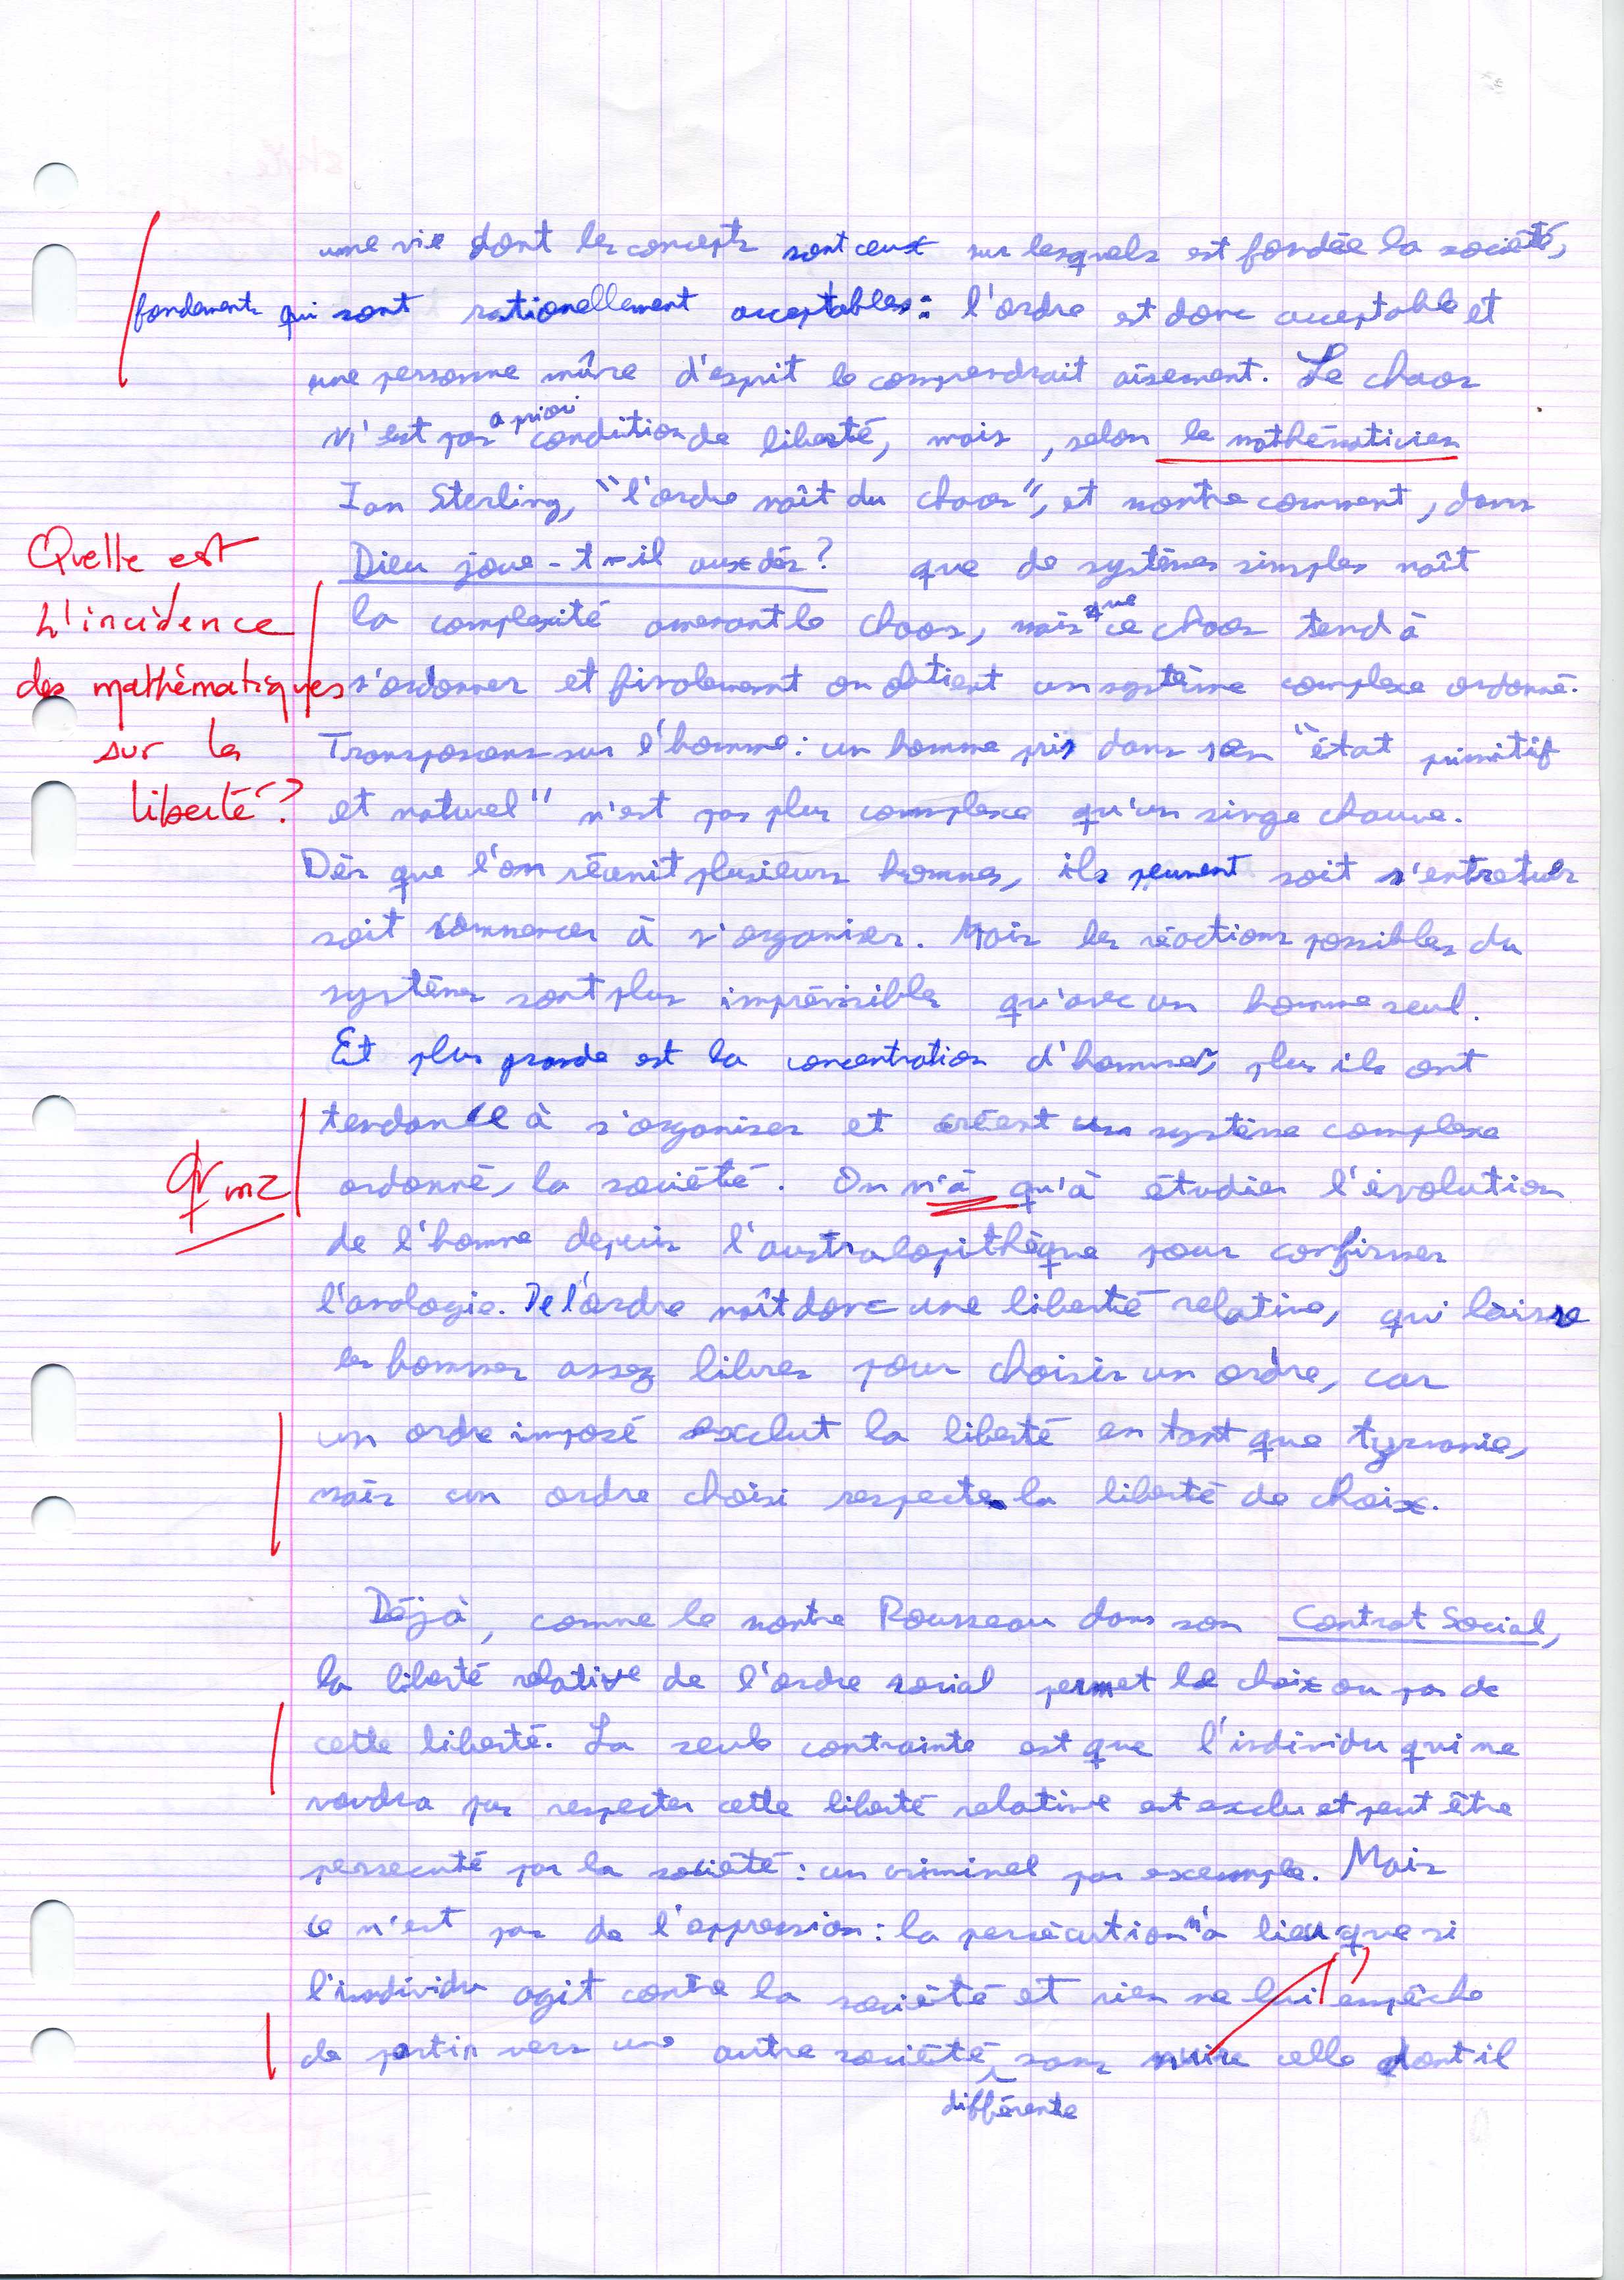 une vie dont les concepts sont ceux sur lesquels est fondée la société,
fondements qui sont rationellement acceptables : l'ordre est donc acceptable et
une personne mûre d'esprit le comprendrait aisement. Le chaos
n'est pas a priori condition de liberté, mais, selon le mathématicien
Ian Sterling, "l'ordre naît du chaos", et montre comment, dans
Dieu joue-t-il aux dés ? que de systèmes simples naît
Quelle est
la complexité amenant le chaos, mais que ce chaos tend à
L'incidence
s'ordonner et finalement on obtient un système complexe ordonné.
des mathématiques
Transposons sur l'homme : un homme pris dans son "état primitif
sur la
et naturel" n'est pas plus complexe qu'un singe chauve.
liberté ?
Dès que l'on réunit plusieurs hommes, ils peuvent soit s'entretuer
soit commencer à s'organiser. Mais les réactions possibles du
système sont plus imprévisibles qu'avec un homme seul.
Et plus grande est la concentration d'hommes, plus ils ont
tendance à s'organiser et créent un système complexe
ordonné, la société. On n'à qu'à étudier l'évolution
de l'homme depuis l'australopithèque pour confirmer
l'analogie. De l'ordre naît donc une liberté relative, qui laisse
les hommes assez libres pour choisir un ordre, car
un ordre imposé exclut la liberté en tant que tyrannie,
mais un ordre choisi respecte la liberté de choix.
Déjà, comme le montre Rousseau dans son Contrat Social,
la liberté relative de l'ordre social permet le choix ou pas de
cette liberté. La seule contrainte est que l'individu qui ne
voudra pas respecter cette liberté relative est exclu et peut être
persecuté par la société : un criminel par exemple. Mais
ce n'est pas de l'oppression : la persécution n'a lieu que si
l'individu agit contre la société et rien ne lui empêche
de partir vers une autre société différente, sans nuire celle dont il